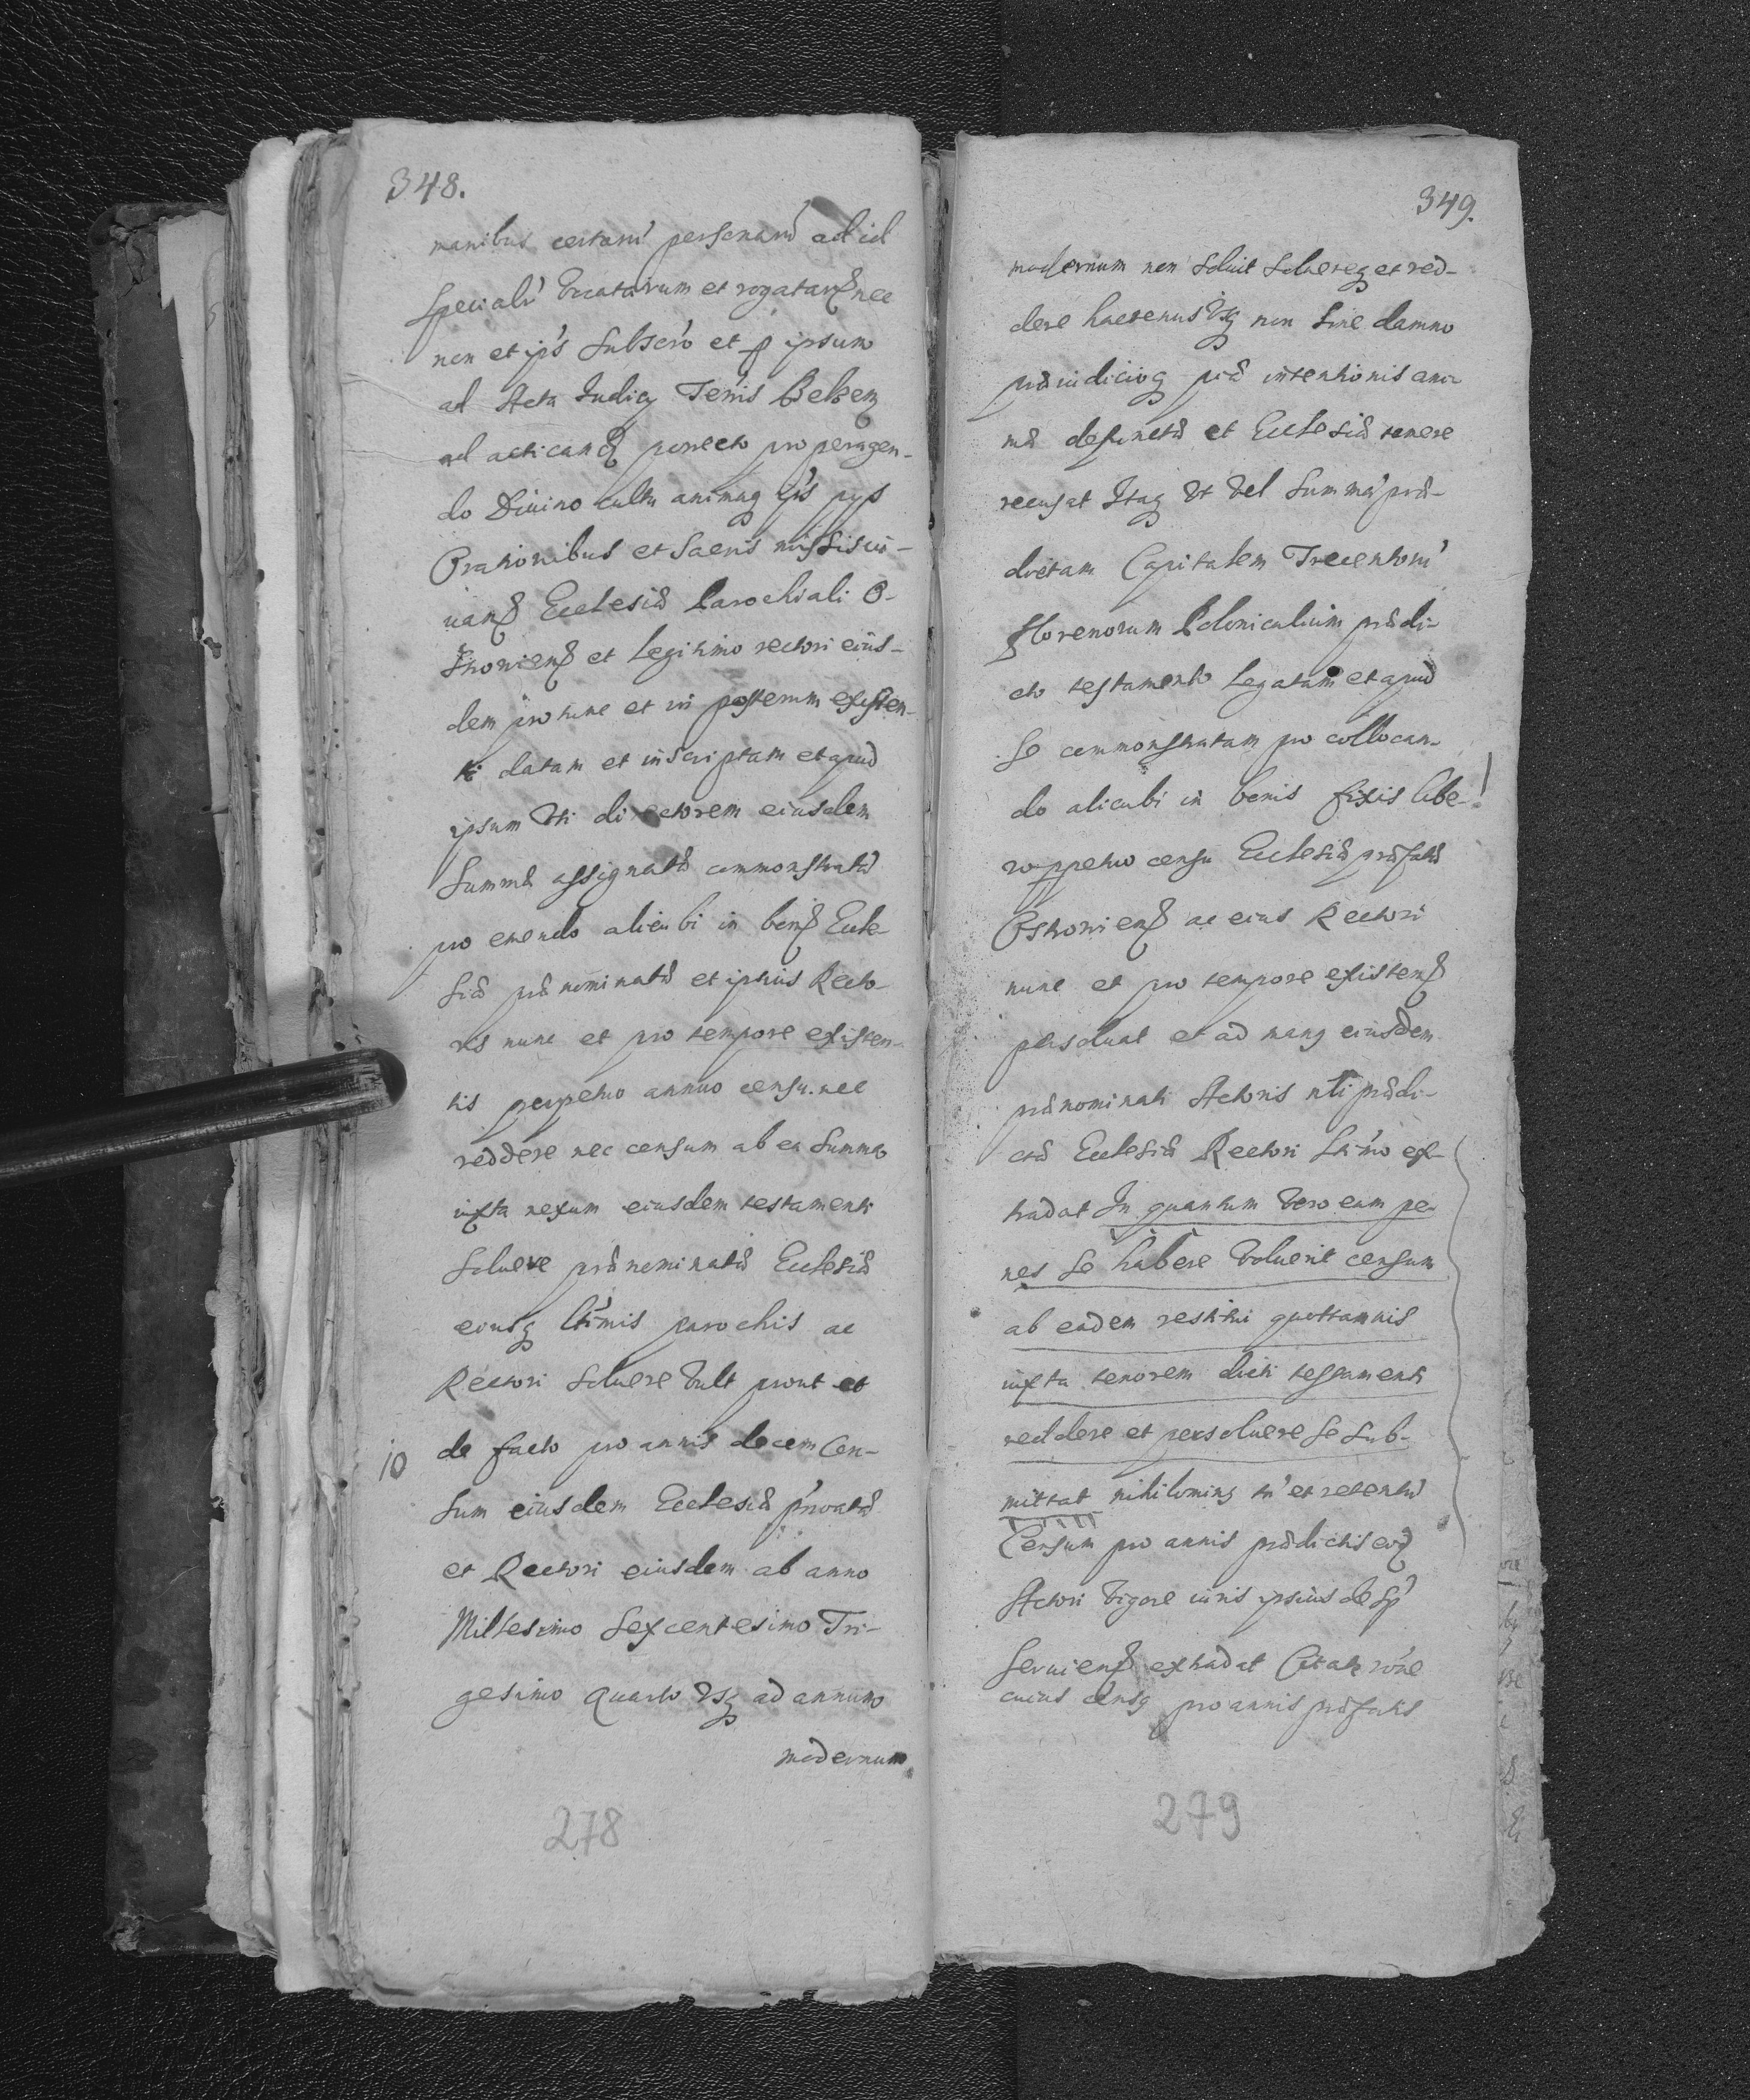 348.
manibus certaru personaru ad id
specialr vocatarum et rogataruq nec
non et ips subscro et p ipsum
ad Acta Judicy Terris Belzen
ad acticand porrecto pro peragen-
do Diuino cultu animaq eis pys
Orationibus et Sacris missis iu-
uand Ecclesiæ Parochiali O-
et Legitimo rectori eius-
dem pro tunc et in posterum existen-
ti datam et inscriptam et apud
ipsum uti directorem eiusdem
Summæ assignatæ commonstratæ
pro emendo alicubi in bonis Eccle-
siæ prænominatæ et ipsius Recto-
ris nunc et pro tempore existen-
tis perpetuo annuo censu. nec
reddere nec censum ab ea Summa
iuxta nexum eiusdem testamenti
soluere prænominatæ Ecclesiæ
eiusq ltimis parochis ac
Rectori soluere vult prout et
10 de facto pro annis decem Cen-
sum eiusdem Ecclesiæ
et Rectori eiusdem ab anno
Millesimo Sexcentesimo Tri-
gesimo Quarto vsq ad annum
modernum
278
349.
modernum non soluit soluereq et red-
dere hactenus vsq non sine damno
præiudicioq piæ intentionis ani-
mæ defunctæ et Ecclesiæ temere
recusat Itaq vt vel Summa præ-
dictam Capitalem Trecentoru
Florenorum Polonicalium prædi-
cto testamento legatam et apud
se commonstratam pro collocan-
do alicubi in bonis fixis libe-
ro ppetuo censu Ecclesiæ præfatæ
ac eius Rectori
nunc et pro tempore existen
persoluat et ad manq eiusdem
prænominati Actoris uti prædi-
ctæ Ecclesiæ Rectori ltimo ex-
tradat In quantum vero eam pe-
nes se habere voluerit censum
ab eadem restitui quottannis
iuxta tenorem dicti testamenti
reddere et persoluere se sub-
mittat nihilominq tn et retentu
Censum pro annis prædictis
Actori vigore iuris ipsius
seruien extradat Citatq róne
cuius censq pro annis præfatis
279